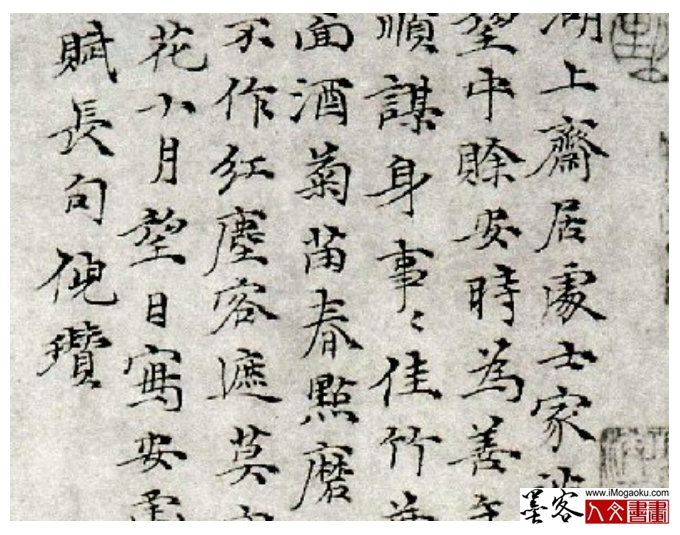 湖上齋居處士家
望中賖安時為善
順謀身事〻佳竹
面酒菊苗春點磨
不作紅塵客遮莫
花十月望日寫安處
賦長句倪瓚
墨客
www.iMogaoku.com
人文書畫